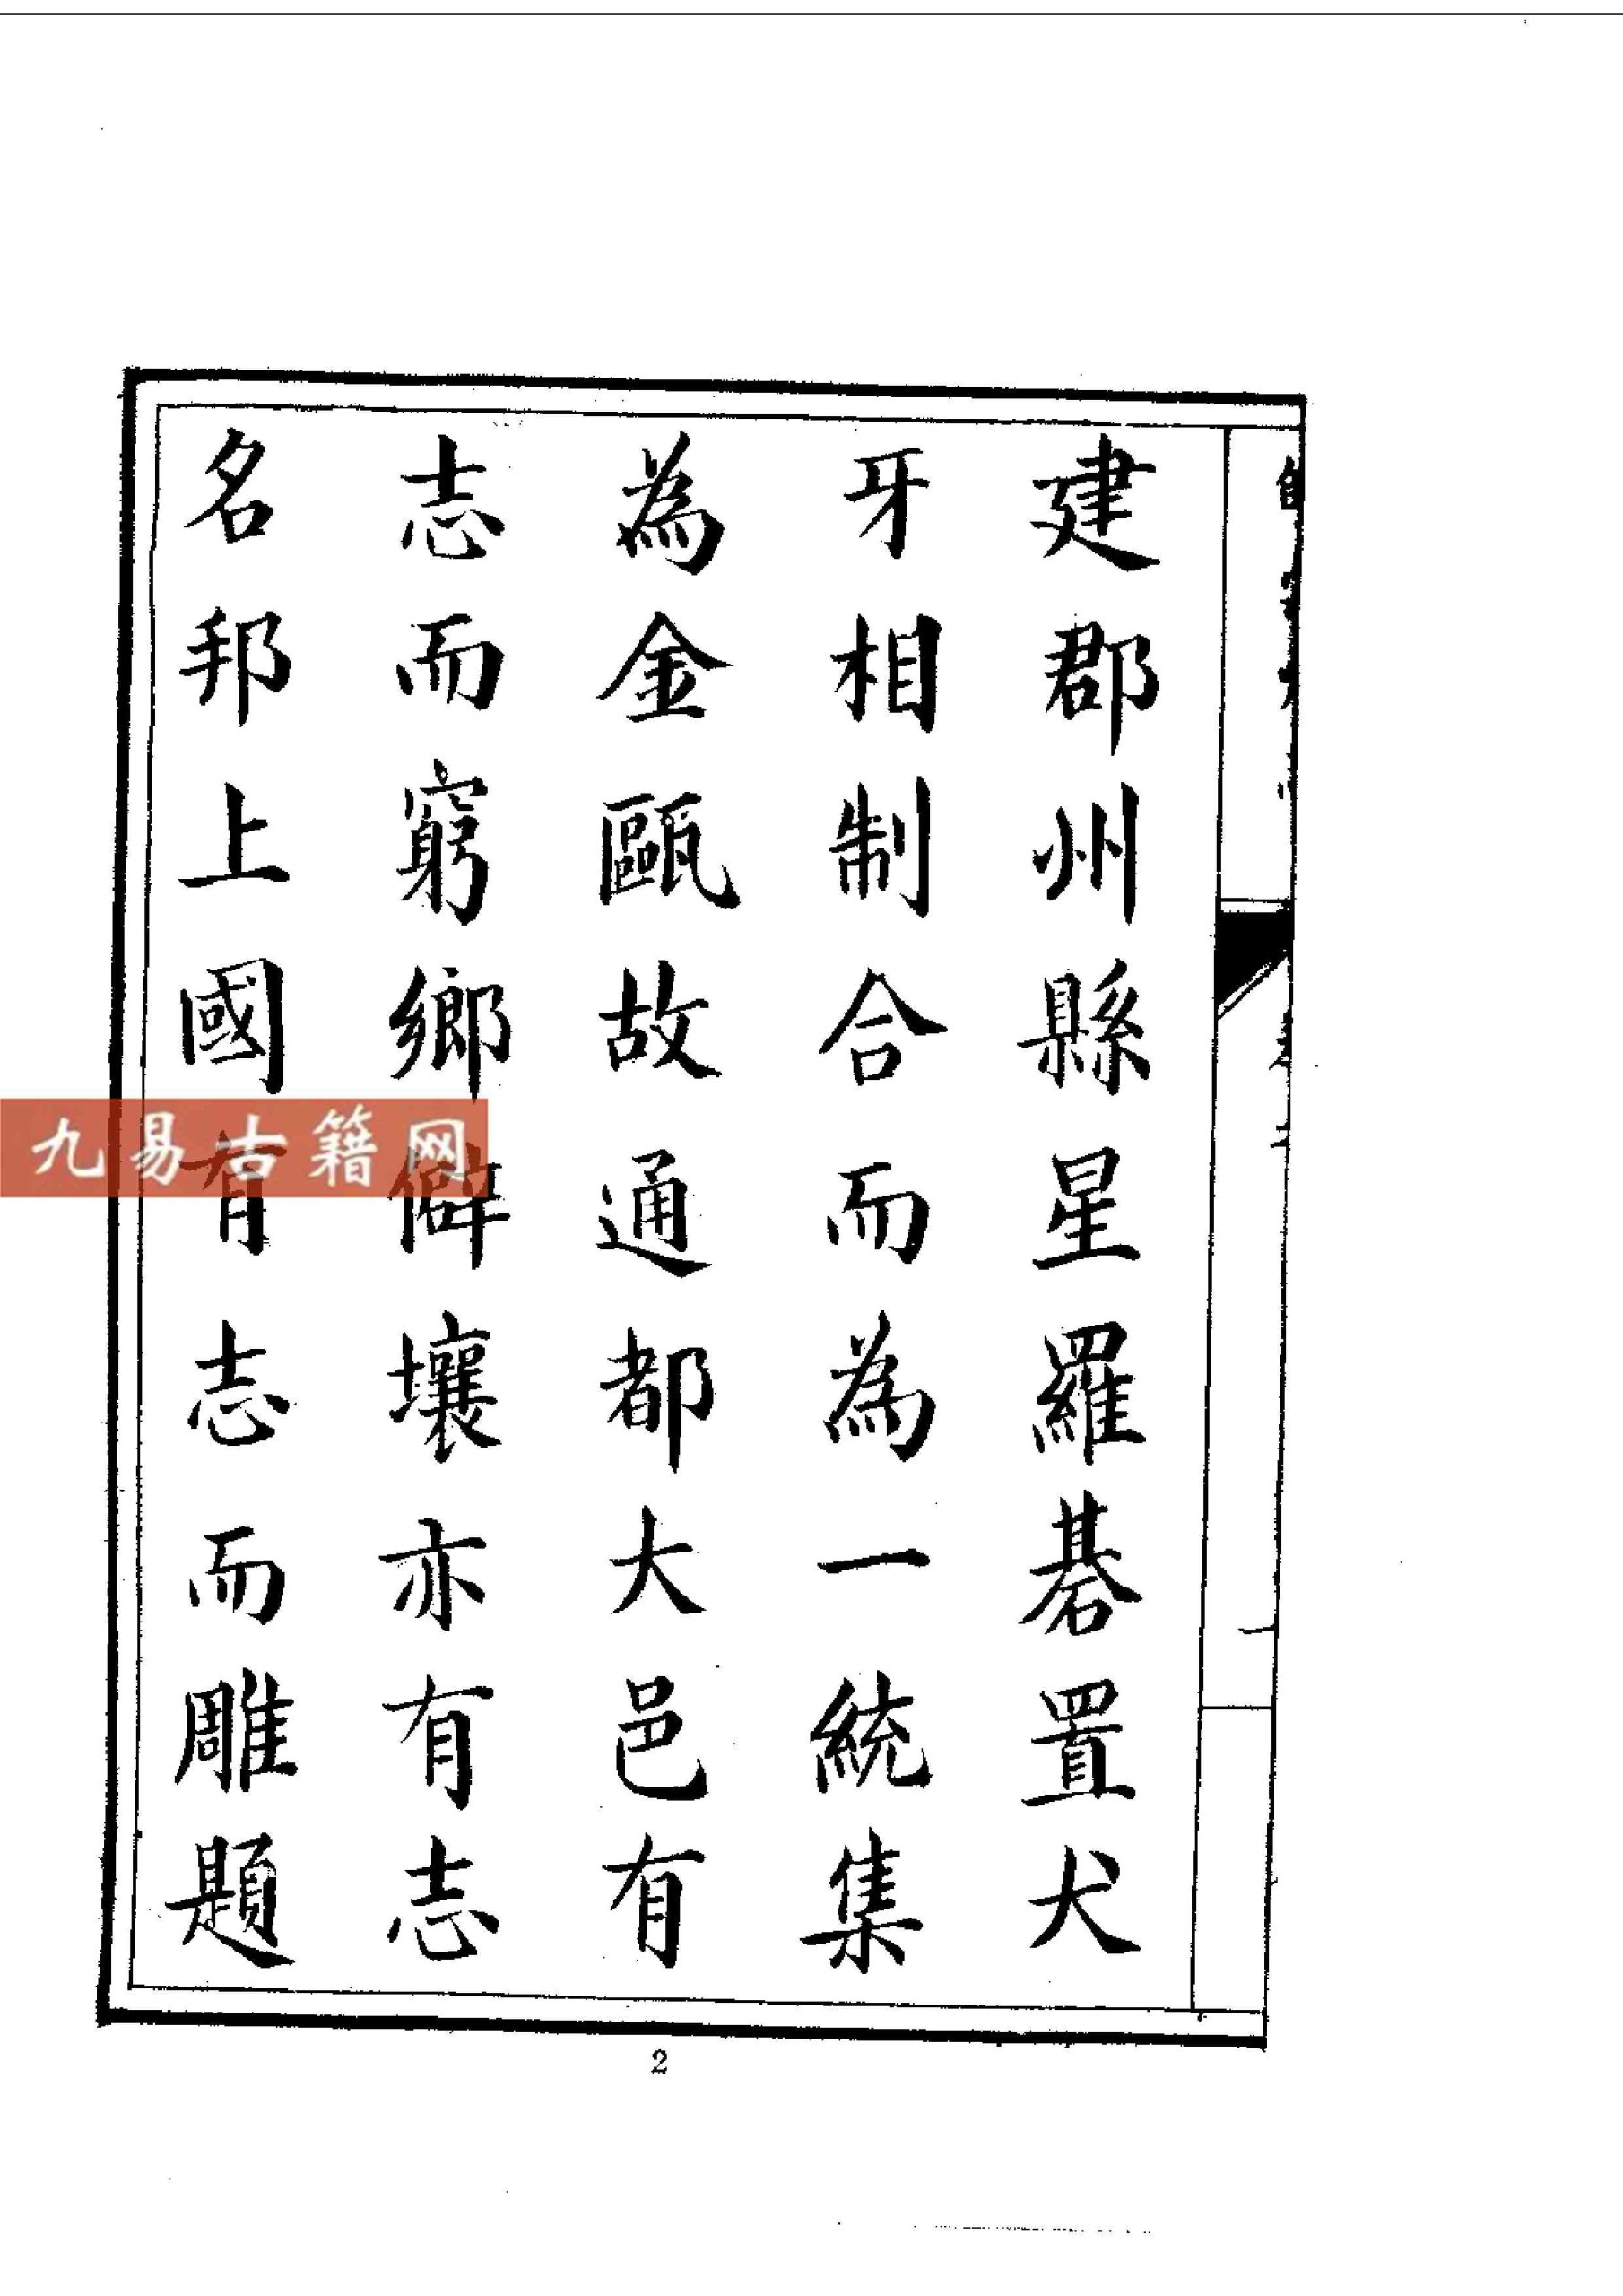 建郡州縣星羅碁置犬
牙相制合而為一統集
為金甌故通都大邑有
志而窮鄉僻壤亦有志
名邦上國有志而雕題
九易古籍网
2